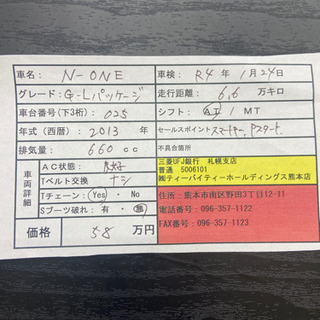 車名: N-ONE 車検: R4年 1月24日
グレード: G・Lパッケージ 走行距離: 6,6 万キロ
車台番号(下3桁) 025 シフト: AT / MT
年式(西暦) 2013 年 セールスポイント スマートキー、Pスタート
排気量: 660 cc 不具合箇所
車両詳細
AC状態: 良好
Tベルト交換 ナシ
Tチェーン: (Yes) / No
Sブーツ破れ: 有 / 無
価格 58 万円
三菱UFJ銀行 札幌支店
普通 5006101
㈱ティーバイティーホールディングス熊本店
住所: 熊本市南区野田3丁目12-11
電話番号: 096-357-1122
FAX番号: 096-357-1123